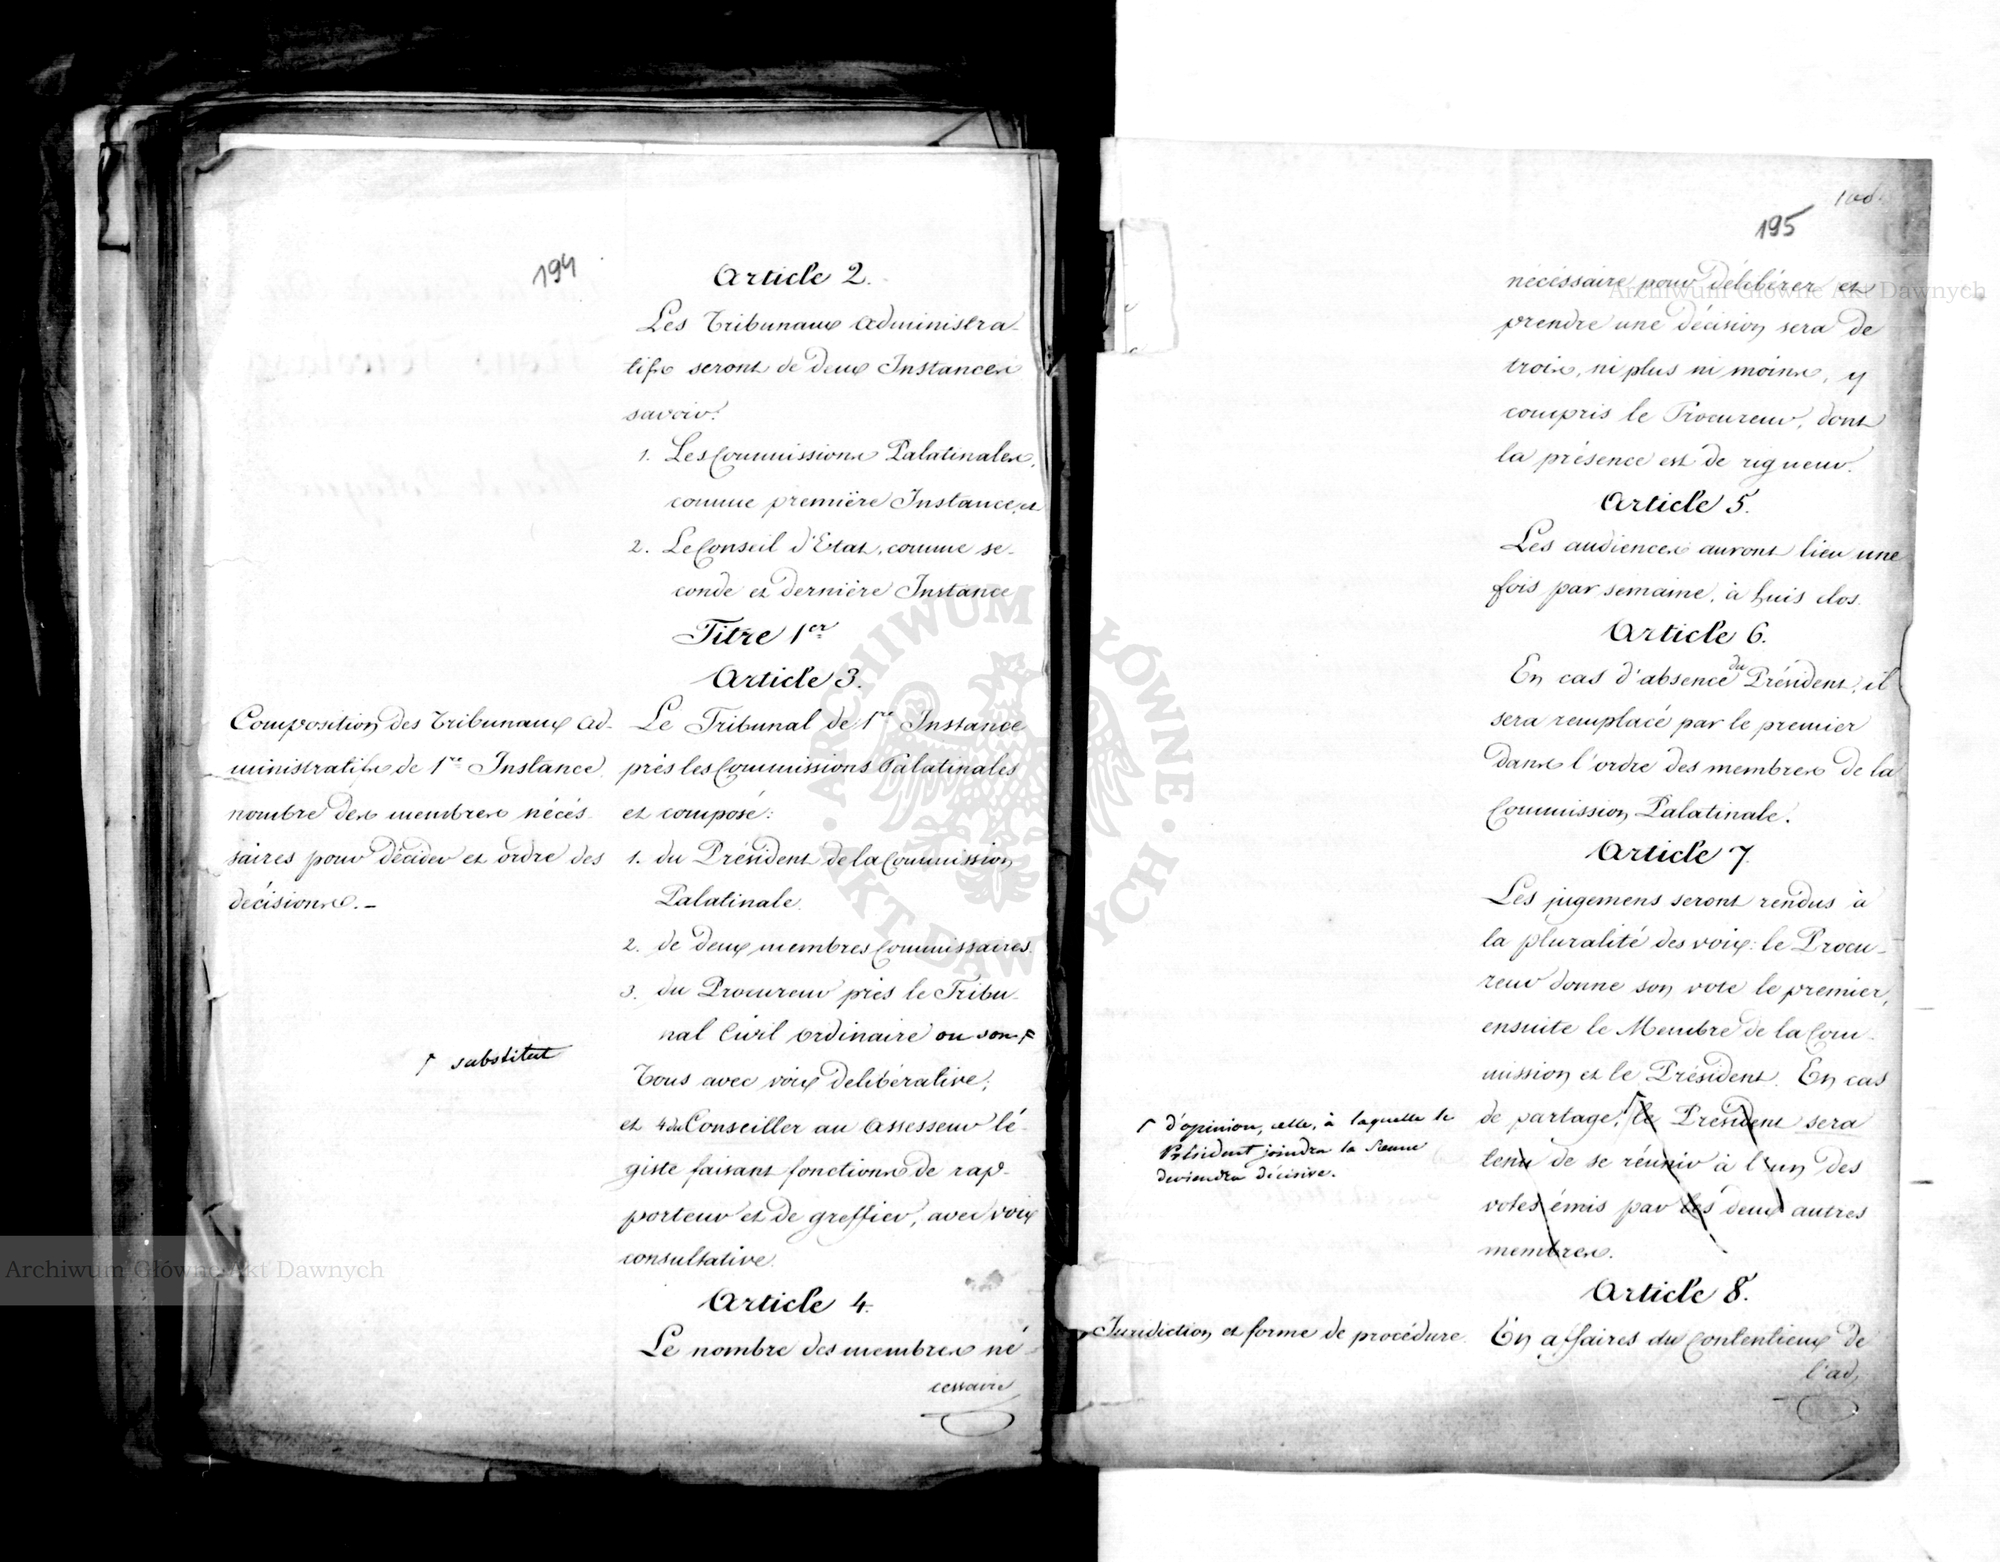 194
Article 2.
Les Tribunaux administra-
tifs seront de deux Instances
savoir:
1. Les Commissions Palatinales,
comme première Instance, et
2. Le Conseil d'Etat, comme se-
conde et dernière Instance
Titre 1er
Article 3.
Composition des Tribunaux ad-
ministratifs de 1re Instance,
nombre des membres néces-
saires pour décider et ordre des
décisions. -
Le Tribunal de 1re Instance
près les Commissions Palatinales
est composé:
1. du Président de la Commission
Palatinale.
2. de deux membres Commissaires.
3. du Procureur près le Tribu-
nal Civil ordinaire ou son
substitut
Tous avec voix delibérative;
et 4 du Conseiller ou Assesseur lé-
giste faisant fonctions de rap-
porteur et de greffier, avec voix
consultative.
Article 4.
Le nombre des membres né-
cessaire
195
nécéssaire pour délibérer et
prendre une décision sera de
trois, ni plus ni moins, y
compris le Procureur, dont
la présence est de rigueur.
Article 5.
Les audiences auront lieu une
fois par semaine, à huis clos.
Article 6.
En cas d'absence du Président, il
sera remplacé par le premier
dans l'ordre des membres de la
Commission Palatinale.
Article 7.
Les jugemens seront rendus à
la pluralité des voix: le Procu-
reur donne son vote le premier,
ensuite le Membre de la Com-
mission et le Président. En cas
de partage, le Président sera
tenu de se réunir à l'un des
votes émis par les deux autres
membres.
d'opinion, celle, à laquelle le
Président joindra la sienne
deviendra décisive.
Article 8.
Juridiction et forme de procédure.
En affaires du Contentieux de
l'ad,
Archiwum Główne Akt Dawnych
Archiwum Główne Akt Dawnych
ARCHIWUM GŁÓWNE
AKT DAWNYCH